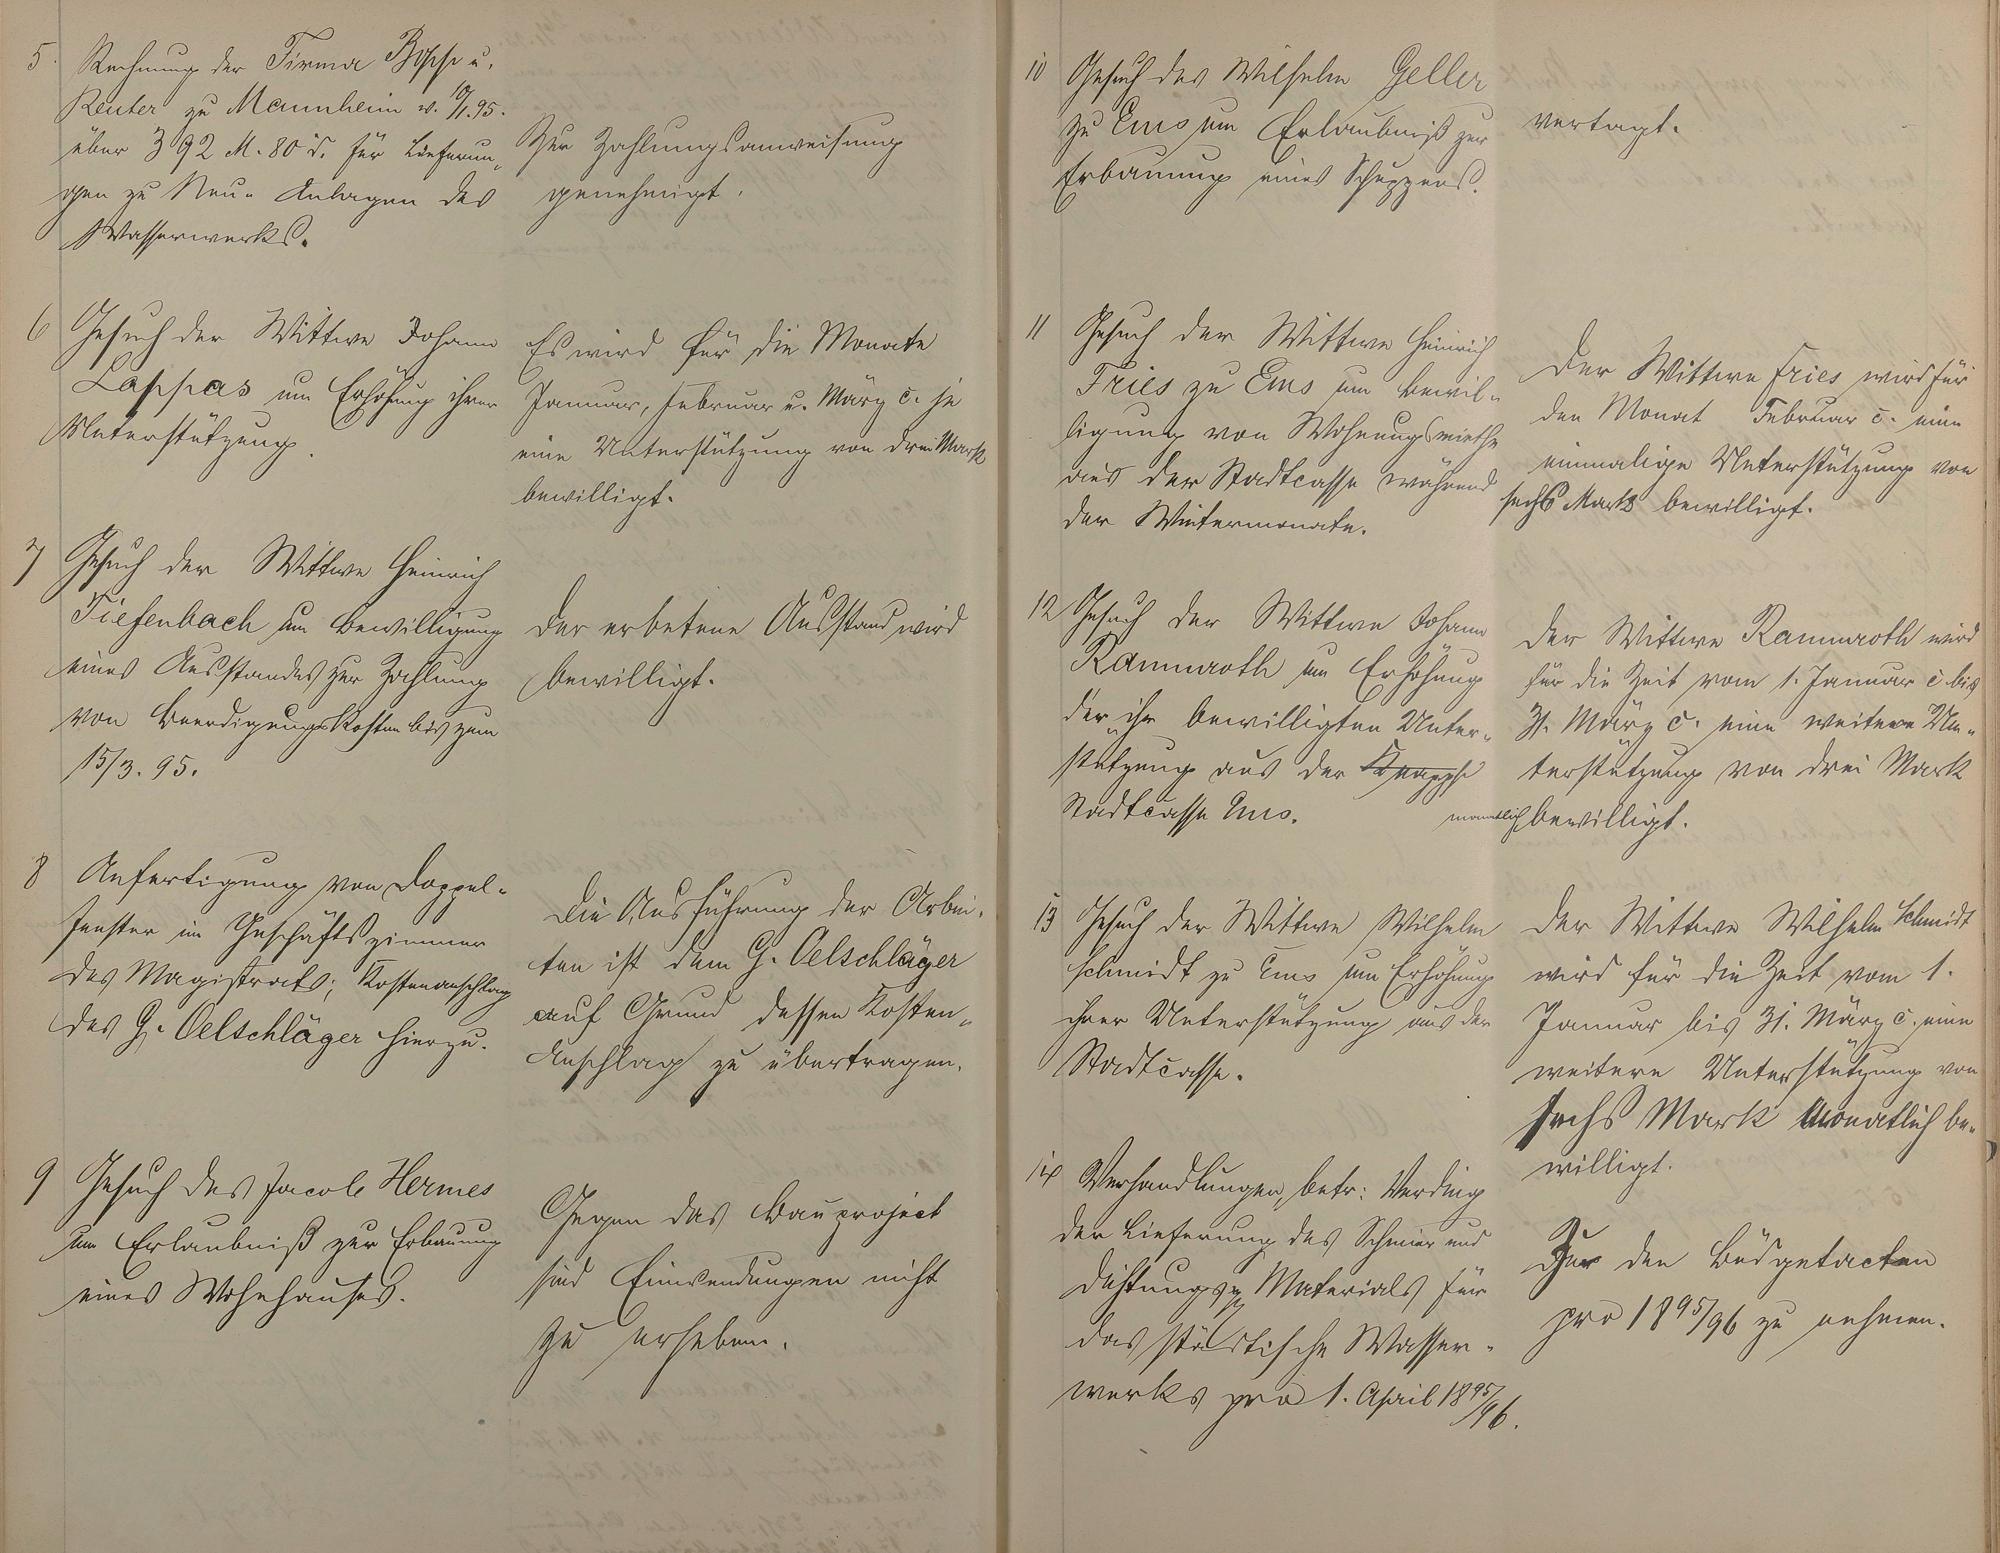 5. Rechnung der Firma Bopp u.
Reuter zu Mannheim v. 10/1. 95.
über 392 M. 80 d. für Lieferun„
gen zu Neu- Anlagen des
Wasserwerks.
Zur Zahlungsanweisung
genehmigt.
6 Gesuch der Wittwe Johann
Lappas um Erhöhung ihrer
Unterstützung.
Es wird für die Monate
Januar, Februar u. März c. je
eine Unterstützung von drei Mark
bewilligt.
7 Gesuch der Wittwe Heinrich
Tiefenbach um Bewilligung
eines Ausstandes zur Zahlung
von Beerdigungskosten bis zum
15/3. 95.
Der erbetene Ausstand wird
bewilligt.
8 Anfertigung von Doppel-
fenster im Geschäftszimmer
des Magistrats; Kostenanschlag
des G. Oelschläger hierzu.
Die Ausführung der Arbei-
ten ist dem G. Oelschläger
auf Grund dessen Kosten„
Anschlag zu übertragen.
9 Gesuch des Jacob Hermes
um Erlaubniß zur Erbauung
eines Wohnhauses.
Gegen das Bauproject
sind Einwendungen nicht
zu erheben.
10 Gesuch des Wilhelm Geller
zu Ems um Erlaubniß zur
Erbauung eines Schuppens.
vertagt.
11 Gesuch der Wittwe Heinrich
Fries zu Ems um Bewil„
ligung von Wohnungsmiethe
aus der Stadtcasse während
der Wintermonate.
Der Wittwe Fries wird für
den Monat Februar c. eine
einmalige Unterstützung von
sechs Mark bewilligt.
12 Gesuch der Wittwe Johann
Rammroth um Erhöhung
der ihr bewilligten Unter„
stützung aus der Knappsch
Stadtcasse Ems.
Der Wittwe Rammroth wird
für die Zeit vom 1. Januar c bis
31. März c. eine weitere Un„
terstützung von drei Mark
monatlich bewilligt.
13 Gesuch der Wittwe Wilhelm
Schmidt zu Ems um Erhöhung
ihrer Unterstützung aus der
Stadtcasse.
Der Wittwe Wilhelm Schmidt
wird für die Zeit vom 1.
Januar bis 31. März c. eine
weitere Unterstützung von
sechs Mark monatlich be„
willigt.
14 Verhandlungen, betr: Verding
der Lieferung des Schmier und
Dichtungs Materials für
das städtische Wasser-
werks pro 1. April 1895/96.
Zu den Büdgetacten
pro 1895/96 zu nehmen.